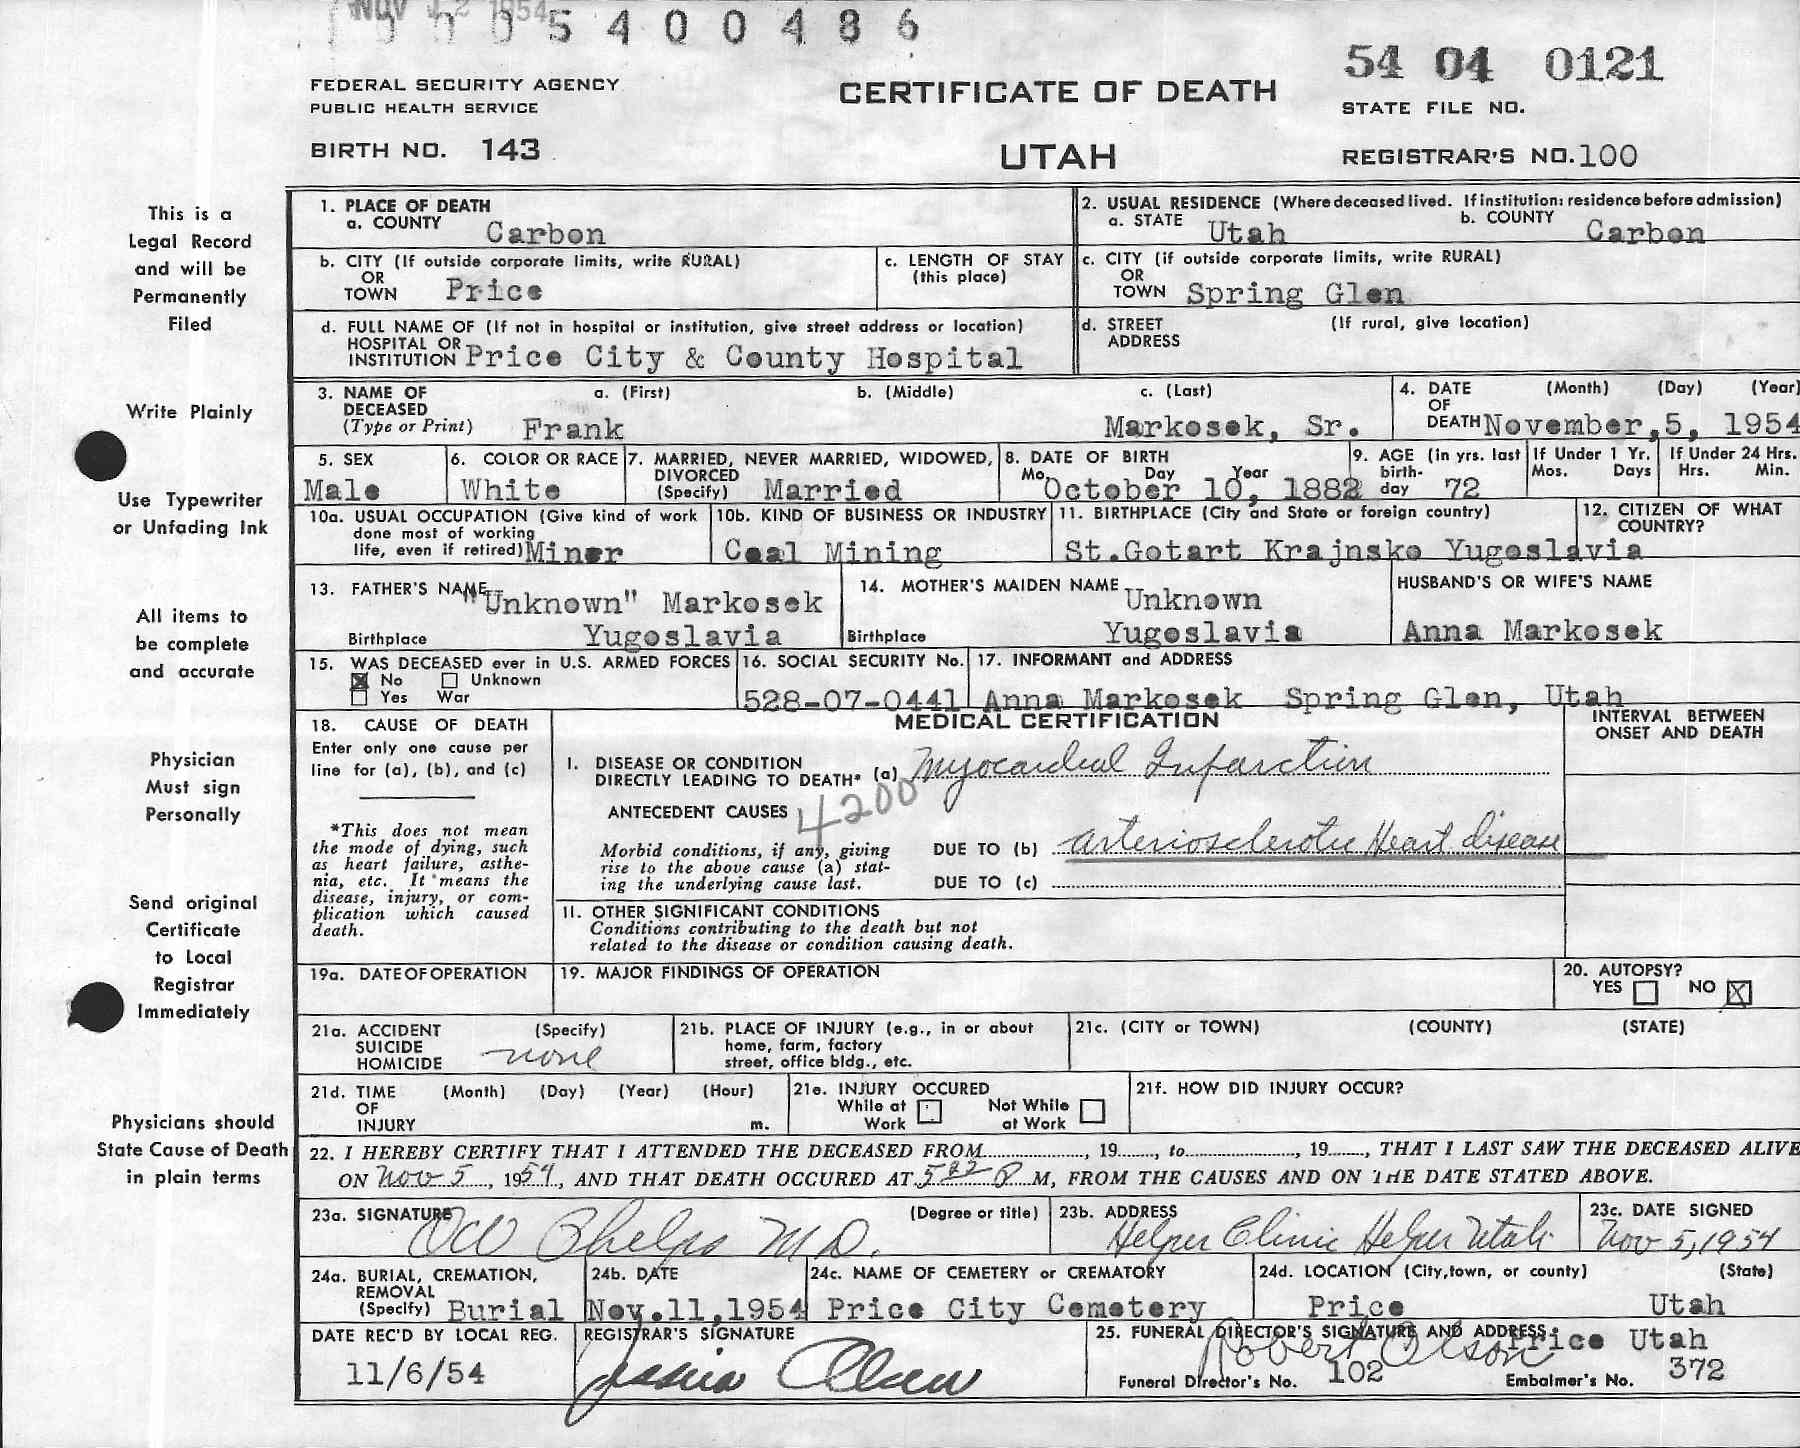 NOV 12 1954
5400486
54 04 0121
FEDERAL SECURITY AGENCY
PUBLIC HEALTH SERVICE
CERTIFICATE OF DEATH
STATE FILE NO.
BIRTH NO. 143
UTAH
REGISTRAR'S NO. 100
This is a
Legal Record
and will be
Permanently
Filed
Write Plainly
Use Typewriter
or Unfading Ink
All items to
be complete
and accurate
Physician
Must sign
Personally
Send original
Certificate
to Local
Registrar
Immediately
Physicians should
State Cause of Death
in plain terms
1. PLACE OF DEATH
a. COUNTY Carbon
2. USUAL RESIDENCE (Where deceased lived. If institution: residence before admission)
a. STATE Utah b. COUNTY Carbon
b. CITY (If outside corporate limits, write RURAL)
OR
TOWN Price
c. LENGTH OF STAY
(this place)
c. CITY (if outside corporate limits, write RURAL)
OR
TOWN Spring Glen
d. FULL NAME OF (If not in hospital or institution, give street address or location)
HOSPITAL OR
INSTITUTION Price City & County Hospital
d. STREET (If rural, give location)
ADDRESS
3. NAME OF a. (First) b. (Middle) c. (Last)
DECEASED
(Type or Print) Frank Markosek, Sr.
4. DATE (Month) (Day) (Year)
OF
DEATH November,5, 1954
5. SEX
Male
6. COLOR OR RACE
White
7. MARRIED, NEVER MARRIED, WIDOWED,
DIVORCED
(Specify) Married
8. DATE OF BIRTH
Mo. Day Year
October 10, 1882
9. AGE (in yrs. last
birth-
day 72
If Under 1 Yr.
Mos. Days
If Under 24 Hrs.
Hrs. Min.
10a. USUAL OCCUPATION (Give kind of work
done most of working
life, even if retired) Miner
10b. KIND OF BUSINESS OR INDUSTRY
Coal Mining
11. BIRTHPLACE (City and State or foreign country)
St.Gotart Krajnsko Yugoslavia
12. CITIZEN OF WHAT
COUNTRY?
13. FATHER'S NAME "Unknown" Markosek
Birthplace Yugoslavia
14. MOTHER'S MAIDEN NAME Unknown
Birthplace Yugoslavia
HUSBAND'S OR WIFE'S NAME
Anna Markosek
15. WAS DECEASED ever in U.S. ARMED FORCES
No Unknown
Yes War
16. SOCIAL SECURITY No.
528-07-0441
17. INFORMANT and ADDRESS
Anna Markosek Spring Glen, Utah
18. CAUSE OF DEATH
Enter only one cause per
line for (a), (b), and (c)
*This does not mean
the mode of dying, such
as heart failure, asthe-
nia, etc. It means the
disease, injury, or com-
plication which caused
death.
MEDICAL CERTIFICATION
INTERVAL BETWEEN
ONSET AND DEATH
I. DISEASE OR CONDITION
DIRECTLY LEADING TO DEATH* (a) Myocardial Infarction
ANTECEDENT CAUSES 4200
Morbid conditions, if any, giving
rise to the above cause (a) stat-
ing the underlying cause last.
DUE TO (b) arteriosclerotic Heart disease
DUE TO (c)
II. OTHER SIGNIFICANT CONDITIONS
Conditions contributing to the death but not
related to the disease or condition causing death.
19a. DATE OF OPERATION
19. MAJOR FINDINGS OF OPERATION
20. AUTOPSY?
YES NO
21a. ACCIDENT (Specify)
SUICIDE
HOMICIDE none
21b. PLACE OF INJURY (e.g., in or about
home, farm, factory
street, office bldg., etc.
21c. (CITY or TOWN) (COUNTY) (STATE)
21d. TIME (Month) (Day) (Year) (Hour)
OF
INJURY m.
21e. INJURY OCCURED
While at Not While
Work at Work
21f. HOW DID INJURY OCCUR?
22. I HEREBY CERTIFY THAT I ATTENDED THE DECEASED FROM , 19 , to , 19 , THAT I LAST SAW THE DECEASED ALIVE
ON Nov 5, 1954, AND THAT DEATH OCCURED AT 5 22 P M, FROM THE CAUSES AND ON THE DATE STATED ABOVE.
23a. SIGNATURE (Degree or title)
Phelps M.D.
23b. ADDRESS
Helper Clinic Helper Utah
23c. DATE SIGNED
Nov 5, 1954
24a. BURIAL, CREMATION,
REMOVAL
(Specify) Burial
24b. DATE
Nov.11,1954
24c. NAME OF CEMETERY or CREMATORY
Price City Cemetery
24d. LOCATION (City,town, or county) (State)
Price Utah
DATE REC'D BY LOCAL REG.
11/6/54
REGISTRAR'S SIGNATURE
Olsen
25. FUNERAL DIRECTOR'S SIGNATURE AND ADDRESS Price Utah
Robert Olson
Funeral Director's No. 102 Embalmer's No. 372